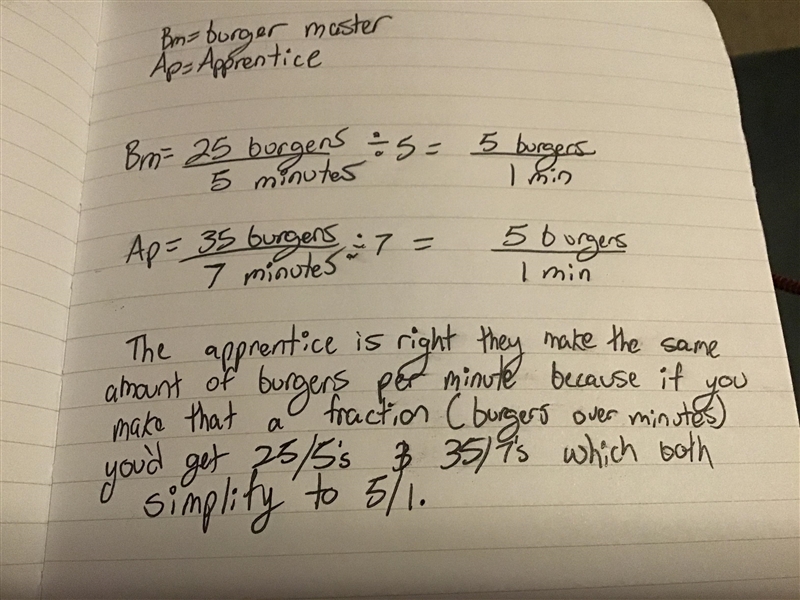 Bm=burger master
Ap=Apprentice
Bm= 25 burgers / 5 minutes ÷5 = 5 burgers / 1 min
Ap= 35 burgers / 7 minutes ÷7 = 5 burgers / 1 min
The apprentice is right they make the same
amount of burgers per minute because if you
make that a fraction (burgers over minutes)
you'd get 25/5's & 35/7's which both
simplify to 5/1.